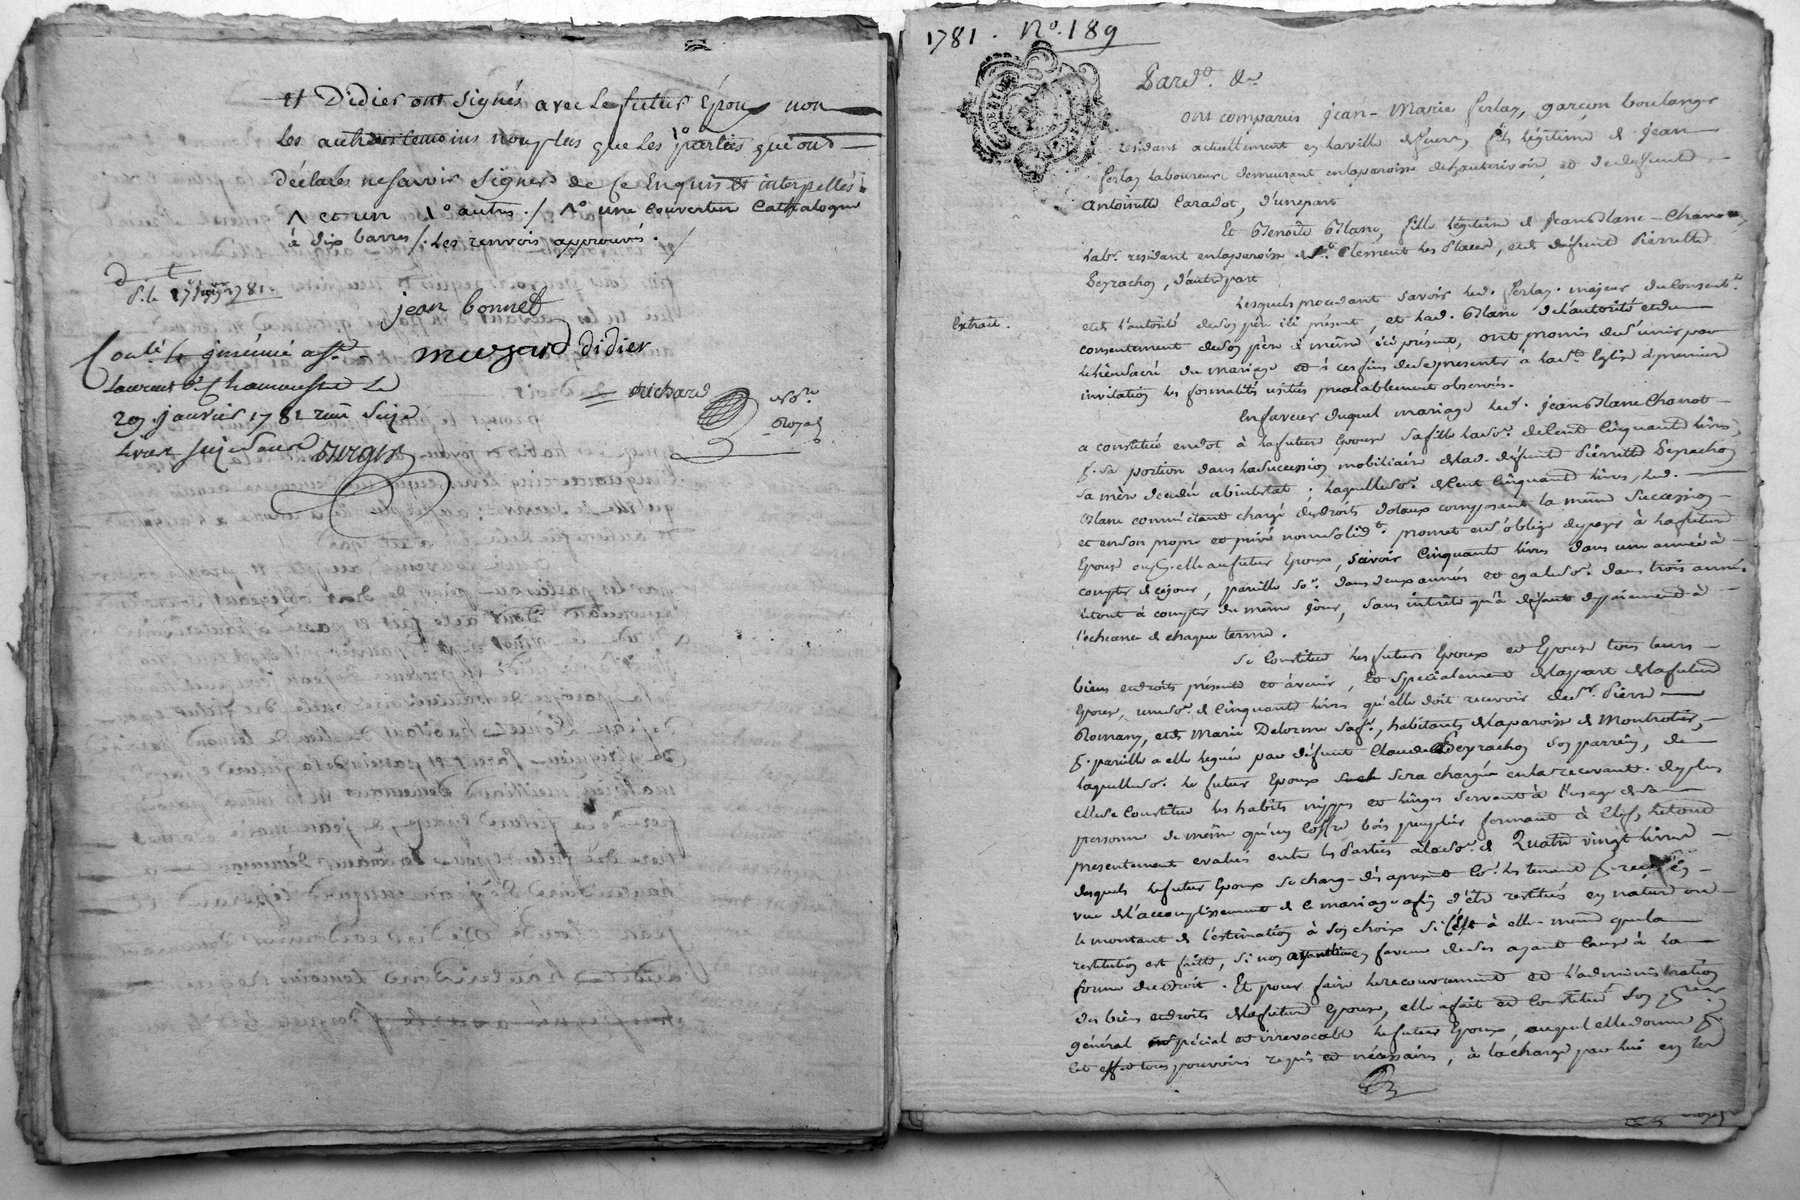 et Didier ont signés avec le futur Epoux non
les autres temoins non plus que les parties qui ont
déclarés ne savoir signer de ce Enquis et interpellés
Λ et un 1° autre ./ Λ° une couverture Cathalogne
à dix barres /. les renvois approuvés . /
jean bonnet
muzard didier
Laurent de Chamousset le
29 janvier 1781 reçu seize
livres seize sous
Richard
No.re
Royal
1781 . No. 189
Pard.t &a
ont comparus jean-Marie ferlay, garçon boulanger
résidant actuellement en la ville de fils légitime de jean
ferlay laboureur demeurant en la paroisse de hauterivoire, et de defunte
Antoinette Caradot, d'une part
Et Benoite Blanc, fille légitime de Jean Blanc-Chanot
lab.r residant en la paroisse de St. Clement les Places, et de défunte Pierrette
Peyrachon, d'autre part
Extrait.
Lesquels procedant savoir led. ferlay majeur du consent.t
et de l'autorité de son père ici présent, et lad. Blanc de l'autorité et du
consentement de son père de même ici présent, ont promis de s'unir par
le lien sacré du mariage et à ces fins de se presenter à la Ste Eglise à première
invitation les formalités usités prealablement observés.
En faveur duquel mariage led. jean Blanc Chanot
a constitué en dot à la future Epouse sa fille la so.e de Cent Cinquante livres,
p. sa portion dans la succession mobiliaire de lad. défunte Pierrette Peyrachon
sa mère decedée abintestat ; laquelle so.e de Cent Cinquante livres, led.
Blanc comme étant chargé des droits dotaux composant la même succession
et en son propre et privé nom solid.t promet et s'oblige de payer à la future
Epouse ou p. elle au futur Epoux, savoir Cinquante livres dans une année à
compter de ce jour, pareille so.e dans deux années et egale so.e dans trois années
le tout à compter du même jour, sans intérêts qu'à défaut de paiement à
l'échéance de chaque terme.
Se Constituent les futurs Epoux et Epouse tous leurs
biens et droits présents et àvenir, et specialement de la part de la future
Epouse, une so.e de Cinquante livres qu'elle doit recevoir de Sr. Pierre
Romany, et de Marie Delorme sa fe., habitants de la paroisse de Montrotier,
p. pareille a elle leguée par défunt Claude Peyrachon son parrein, de
laquelle so.e le futur Epoux sera chargé en la recevant. De plus
elle se Constitue les habits nippes et linges servant à l'usage de sa
personne de même qu'un Coffre bois peuplier fermant à Clef, le tout
presentement evalués entre les Parties à la so.e de Quatre vingt livres
desquels le futur Epoux se charge dès à present les tenant p. reçus en
vue de l'accomplissement de ce mariage afin d'être restitués en nature ou
le montant de l'estimation à son choix si C'est à elle-même que la
restitution est faitte, si non en faveur de ses ayant Cause à la
forme du Droit. Et pour faire le recouvrement et l'administration
des biens et droits de la future Epouse, elle a fait et Constitué son
général special et irrevocable le futur Epoux, auquel elle donne p.
cet effet tous pouvoirs requis et nécessaires, à la charge par lui en les